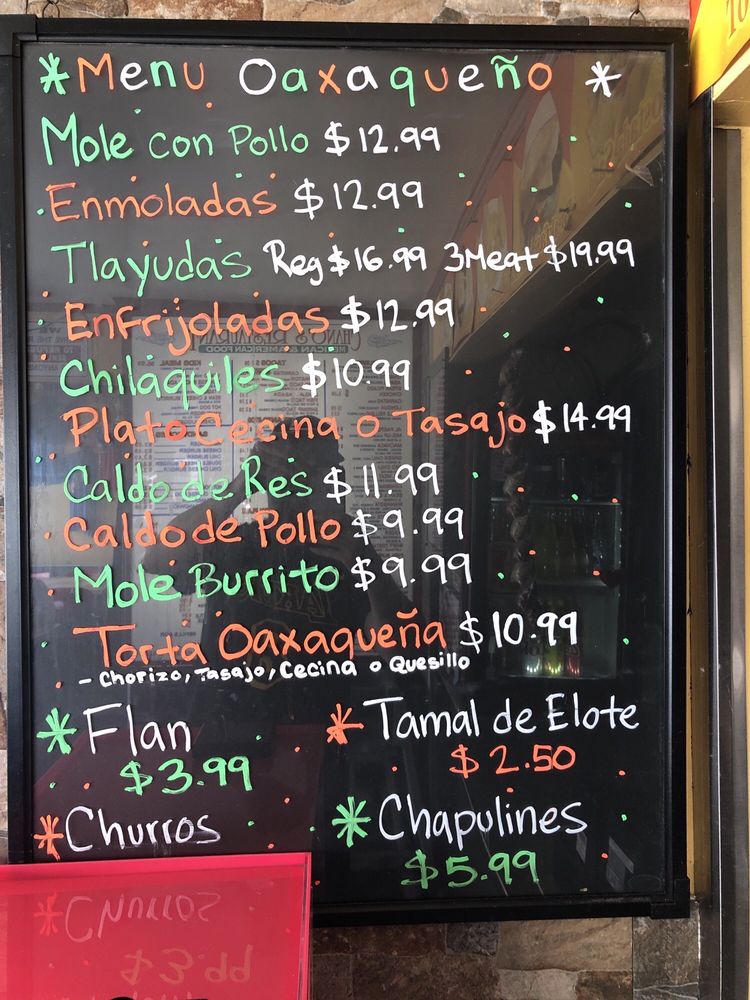 *Menu Oaxaqueño*
Mole con Pollo $12.99
Enmoladas $12.99
Tlayudas Reg $16.99 3Meat $19.99
Enfrijoladas $12.99
Chilaquiles $10.99
Plato Cecina o Tasajo $14.99
Caldo de Res $11.99
Caldo de Pollo $9.99
Mole Burrito $9.99
Torta Oaxaqueña $10.99
- Chorizo, Tasajo, Cecina o Quesillo
*Flan
$3.99
*Tamal de Elote
$2.50
*Churros
*Chapulines
$5.99